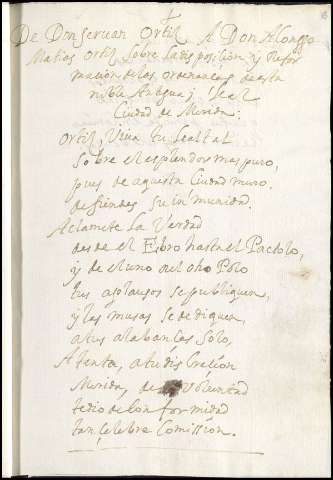 De Don seruan Ortiz A Don Alonzzo
Matias Ortiz sobre la disposiçion y Refor
maçion de las ordenanças de esta
noble Antigua y leal
Ciudad de Merida.
Ortiz, Viva tu lealtat
sobre el esplandor mas puro,
pues de aquesta Ciudad muro
defiendes su inmunidad,
Aclamete la Verdad
desde el Ebro hasta el Pactolo,
y de el uno al otro Polo
tus aplausos se publiquen,
y las musas se dediquen
a tus alabanças solo,
Atenta, a tu discreçion
Merida, de su Voluntad
te dio de conformidad
tan çelebre Comission.